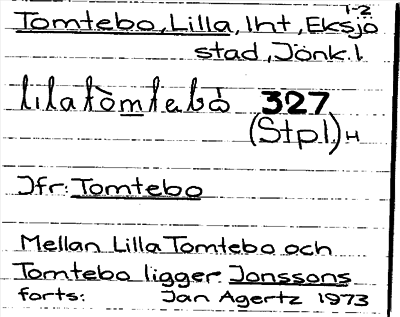 1-2
Tomtebo, Lilla, lht, Eksjö
stad, Jönk. l
lilatòmtebó 327
(Stpl.) H
Jfr: Tomtebo
Mellan Lilla Tomtebo och
Tomtebo ligger Jonssons
forts: Jan Agertz 1973